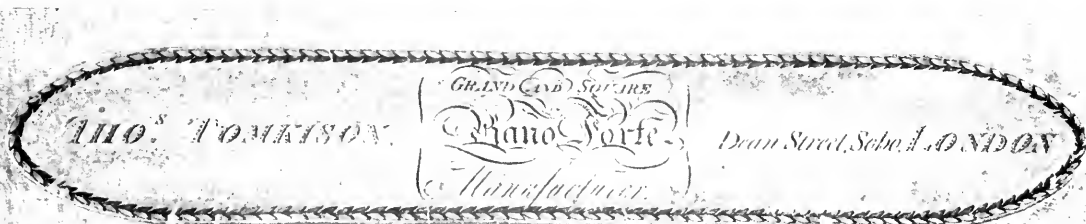 THOS. TOMKISON.
GRAND AND SQUARE
Piano Forte
Manufacturer.
Dean Street, Soho, LONDON